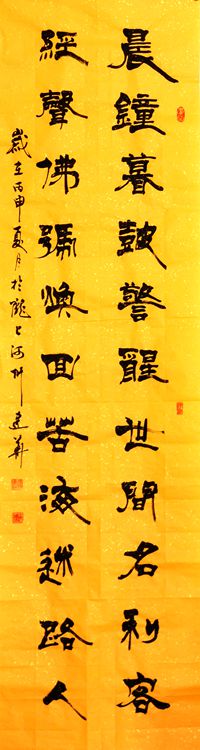 晨鐘暮鼓警醒世間名利客
經聲佛號煥回苦海迷路人
歲在丙申夏月於隴上河州建華